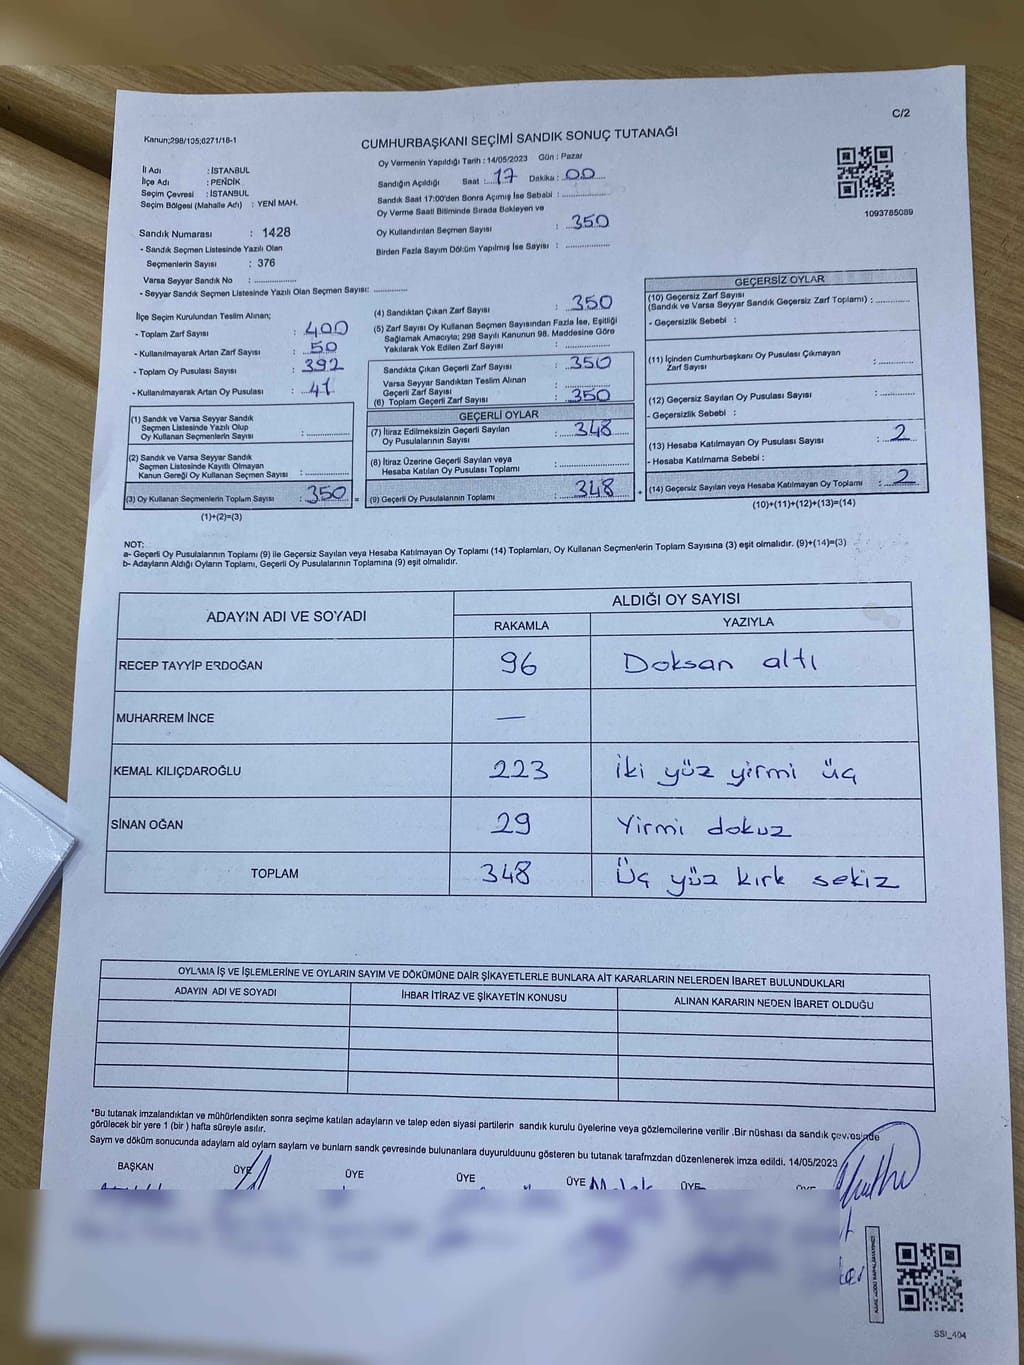 C/2
Kanun;298/105;6271/18-1
CUMHURBAŞKANI SEÇİMİ SANDIK SONUÇ TUTANAĞI
İl Adı : İSTANBUL
İlçe Adı : PENDİK
Seçim Çevresi : İSTANBUL
Seçim Bölgesi (Mahalle Adı) : YENİ MAH.
Sandık Numarası : 1428
- Sandık Seçmen Listesinde Yazılı Olan
Seçmenlerin Sayısı : 376
Varsa Seyyar Sandık No : ..............
- Seyyar Sandık Seçmen Listesinde Yazılı Olan Seçmen Sayısı: ............
Oy Vermenin Yapıldığı Tarih : 14/05/2023 Gün : Pazar
Sandığın Açıldığı Saat : 17 Dakika : 00
Sandık Saat 17:00'den Sonra Açımış İse Sebabi : ..............
Oy Verme Saati Bitiminde Sırada Bekleyen ve
Oy Kullandırılan Seçmen Sayısı : 350
Birden Fazla Sayım Döküm Yapılmış İse Sayısı : ..............
1093785089
İlçe Seçim Kurulundan Teslim Alınan;
- Toplam Zarf Sayısı : 400
- Kullanılmayarak Artan Zarf Sayısı : 50
- Toplam Oy Pusulası Sayısı : 392
- Kullanılmayarak Artan Oy Pusulası : 41
(1) Sandık ve Varsa Seyyar Sandık
Seçmen Listesinde Yazılı Olup
Oy Kullanan Seçmenlerin Sayısı : ..............
(2) Sandık ve Varsa Seyyar Sandık
Seçmen Listesinde Kayıtlı Olmayan
Kanun Gereği Oy Kullanan Seçmen Sayısı : ..............
(3) Oy Kullanan Seçmenlerin Toplam Sayısı : 350 =
(1)+(2)=(3)
(4) Sandıktan Çıkan Zarf Sayısı : 350
(5) Zarf Sayısı Oy Kullanan Seçmen Sayısından Fazla İse, Eşitliği
Sağlamak Amacıyla; 298 Sayılı Kanunun 98. Maddesine Göre
Yakılarak Yok Edilen Zarf Sayısı : ..............
Sandıkta Çıkan Geçerli Zarf Sayısı : 350
Varsa Seyyar Sandıktan Teslim Alınan
Geçerli Zarf Sayısı : ..............
(6) Toplam Geçerli Zarf Sayısı : 350
GEÇERLİ OYLAR
(7) İtiraz Edilmeksizin Geçerli Sayılan
Oy Pusulalarının Sayısı : 348
(8) İtiraz Üzerine Geçerli Sayılan veya
Hesaba Katılan Oy Pusulası Toplamı : ..............
(9) Geçerli Oy Pusulalarının Toplamı : 348 +
GEÇERSİZ OYLAR
(10) Geçersiz Zarf Sayısı
(Sandık ve Varsa Seyyar Sandık Geçersiz Zarf Toplamı) : ............
- Geçersizlik Sebebi :
(11) İçinden Cumhurbaşkanı Oy Pusulası Çıkmayan
Zarf Sayısı : ............
(12) Geçersiz Sayılan Oy Pusulası Sayısı : ............
- Geçersizlik Sebebi :
(13) Hesaba Katılmayan Oy Pusulası Sayısı : 2
- Hesaba Katılmama Sebebi :
(14) Geçersiz Sayılan veya Hesaba Katılmayan Oy Toplamı : 2
(10)+(11)+(12)+(13)=(14)
NOT:
a- Geçerli Oy Pusulalarının Toplamı (9) ile Geçersiz Sayılan veya Hesaba Katılmayan Oy Toplamı (14) Toplamları, Oy Kullanan Seçmenlerin Toplam Sayısına (3) eşit olmalıdır. (9)+(14)=(3)
b- Adayların Aldığı Oyların Toplamı, Geçerli Oy Pusulalarının Toplamına (9) eşit olmalıdır.
ADAYIN ADI VE SOYADI ALDIĞI OY SAYISI
RAKAMLA YAZIYLA
RECEP TAYYİP ERDOĞAN 96 Doksan altı
MUHARREM İNCE —
KEMAL KILIÇDAROĞLU 223 iki yüz yirmi üç
SİNAN OĞAN 29 Yirmi dokuz
TOPLAM 348 Üç yüz kırk sekiz
OYLAMA İŞ VE İŞLEMLERİNE VE OYLARIN SAYIM VE DÖKÜMÜNE DAİR ŞİKAYETLERLE BUNLARA AİT KARARLARIN NELERDEN İBARET BULUNDUKLARI
ADAYIN ADI VE SOYADI İHBAR İTİRAZ VE ŞİKAYETİN KONUSU ALINAN KARARIN NEDEN İBARET OLDUĞU
*Bu tutanak imzalandıktan ve mühürlendikten sonra seçime katılan adayların ve talep eden siyasi partilerin sandık kurulu üyelerine veya gözlemcilerine verilir .Bir nüshası da sandık çevresinde
görülecek bir yere 1 (bir ) hafta süreyle asılır.
Sayım ve döküm sonucunda adayların ald oyların sayları ve bunların sandk çevresinde bulunanlara duyurulduunu gösteren bu tutanak tarafmzdan düzenlenerek imza edildi. 14/05/2023
BAŞKAN ÜYE ÜYE ÜYE ÜYE ÜYE
SSI_404